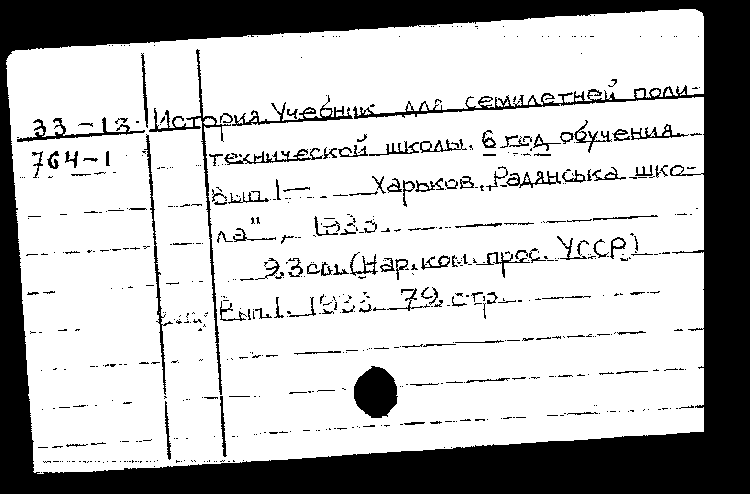 33-13 История. Учебник для семилетней поли-
764-1 технической школы. 6 год обучения.
Вып. 1— Харьков, „Радянська шко-
ла", 1933.
23 см. (Нар. ком. прос. УССР)
Вып. 1. 1933. 79. стр.